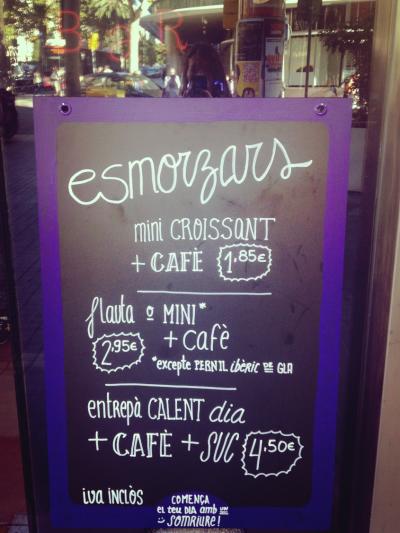 BAR
esmorzars
mini CROISSANT
+ CAFÈ 1,85€
flauta o MINI*
2,95€ + cafè
*excepte PERNIL ibèric DE GLA
entrepà CALENT dia
+ CAFÈ + SUC 4,50€
iva inclòs
COMENÇA
el teu DIA amb UN
SOMRIURE!